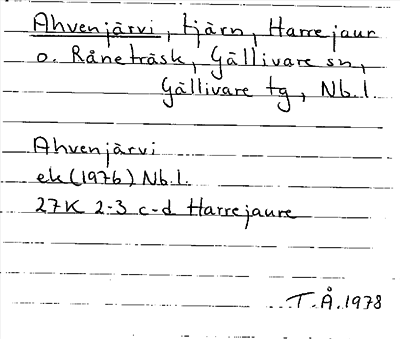 Ahvenjärvi, tjärn, Harrejaur
o. Råneträsk, Gällivare sn,
Gällivare tg, Nb.l.
Ahvenjärvi
ek (1976) Nb.l.
27K 2-3 c-d Harrejaure
T.Å. 1978